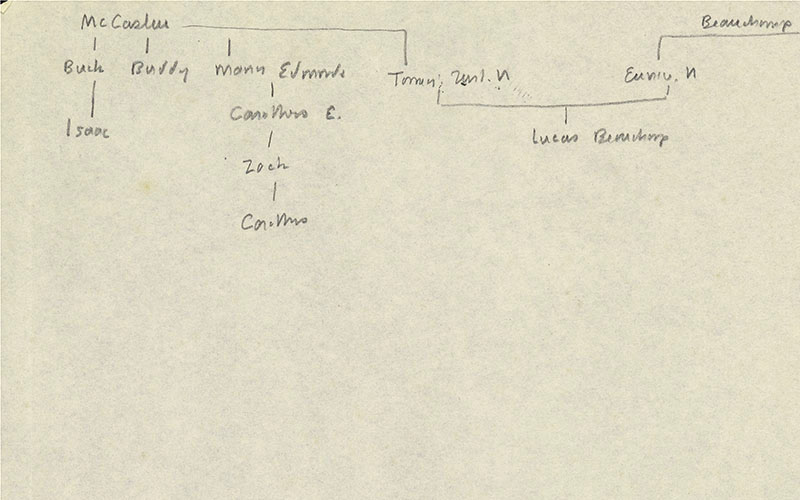 McCaslin Beauchamp
Buck Buddy Mary Edmonds Tomey's Turl. N Eunice. N
Isaac Carothers E. Lucas Beauchamp
Zack
Carothers